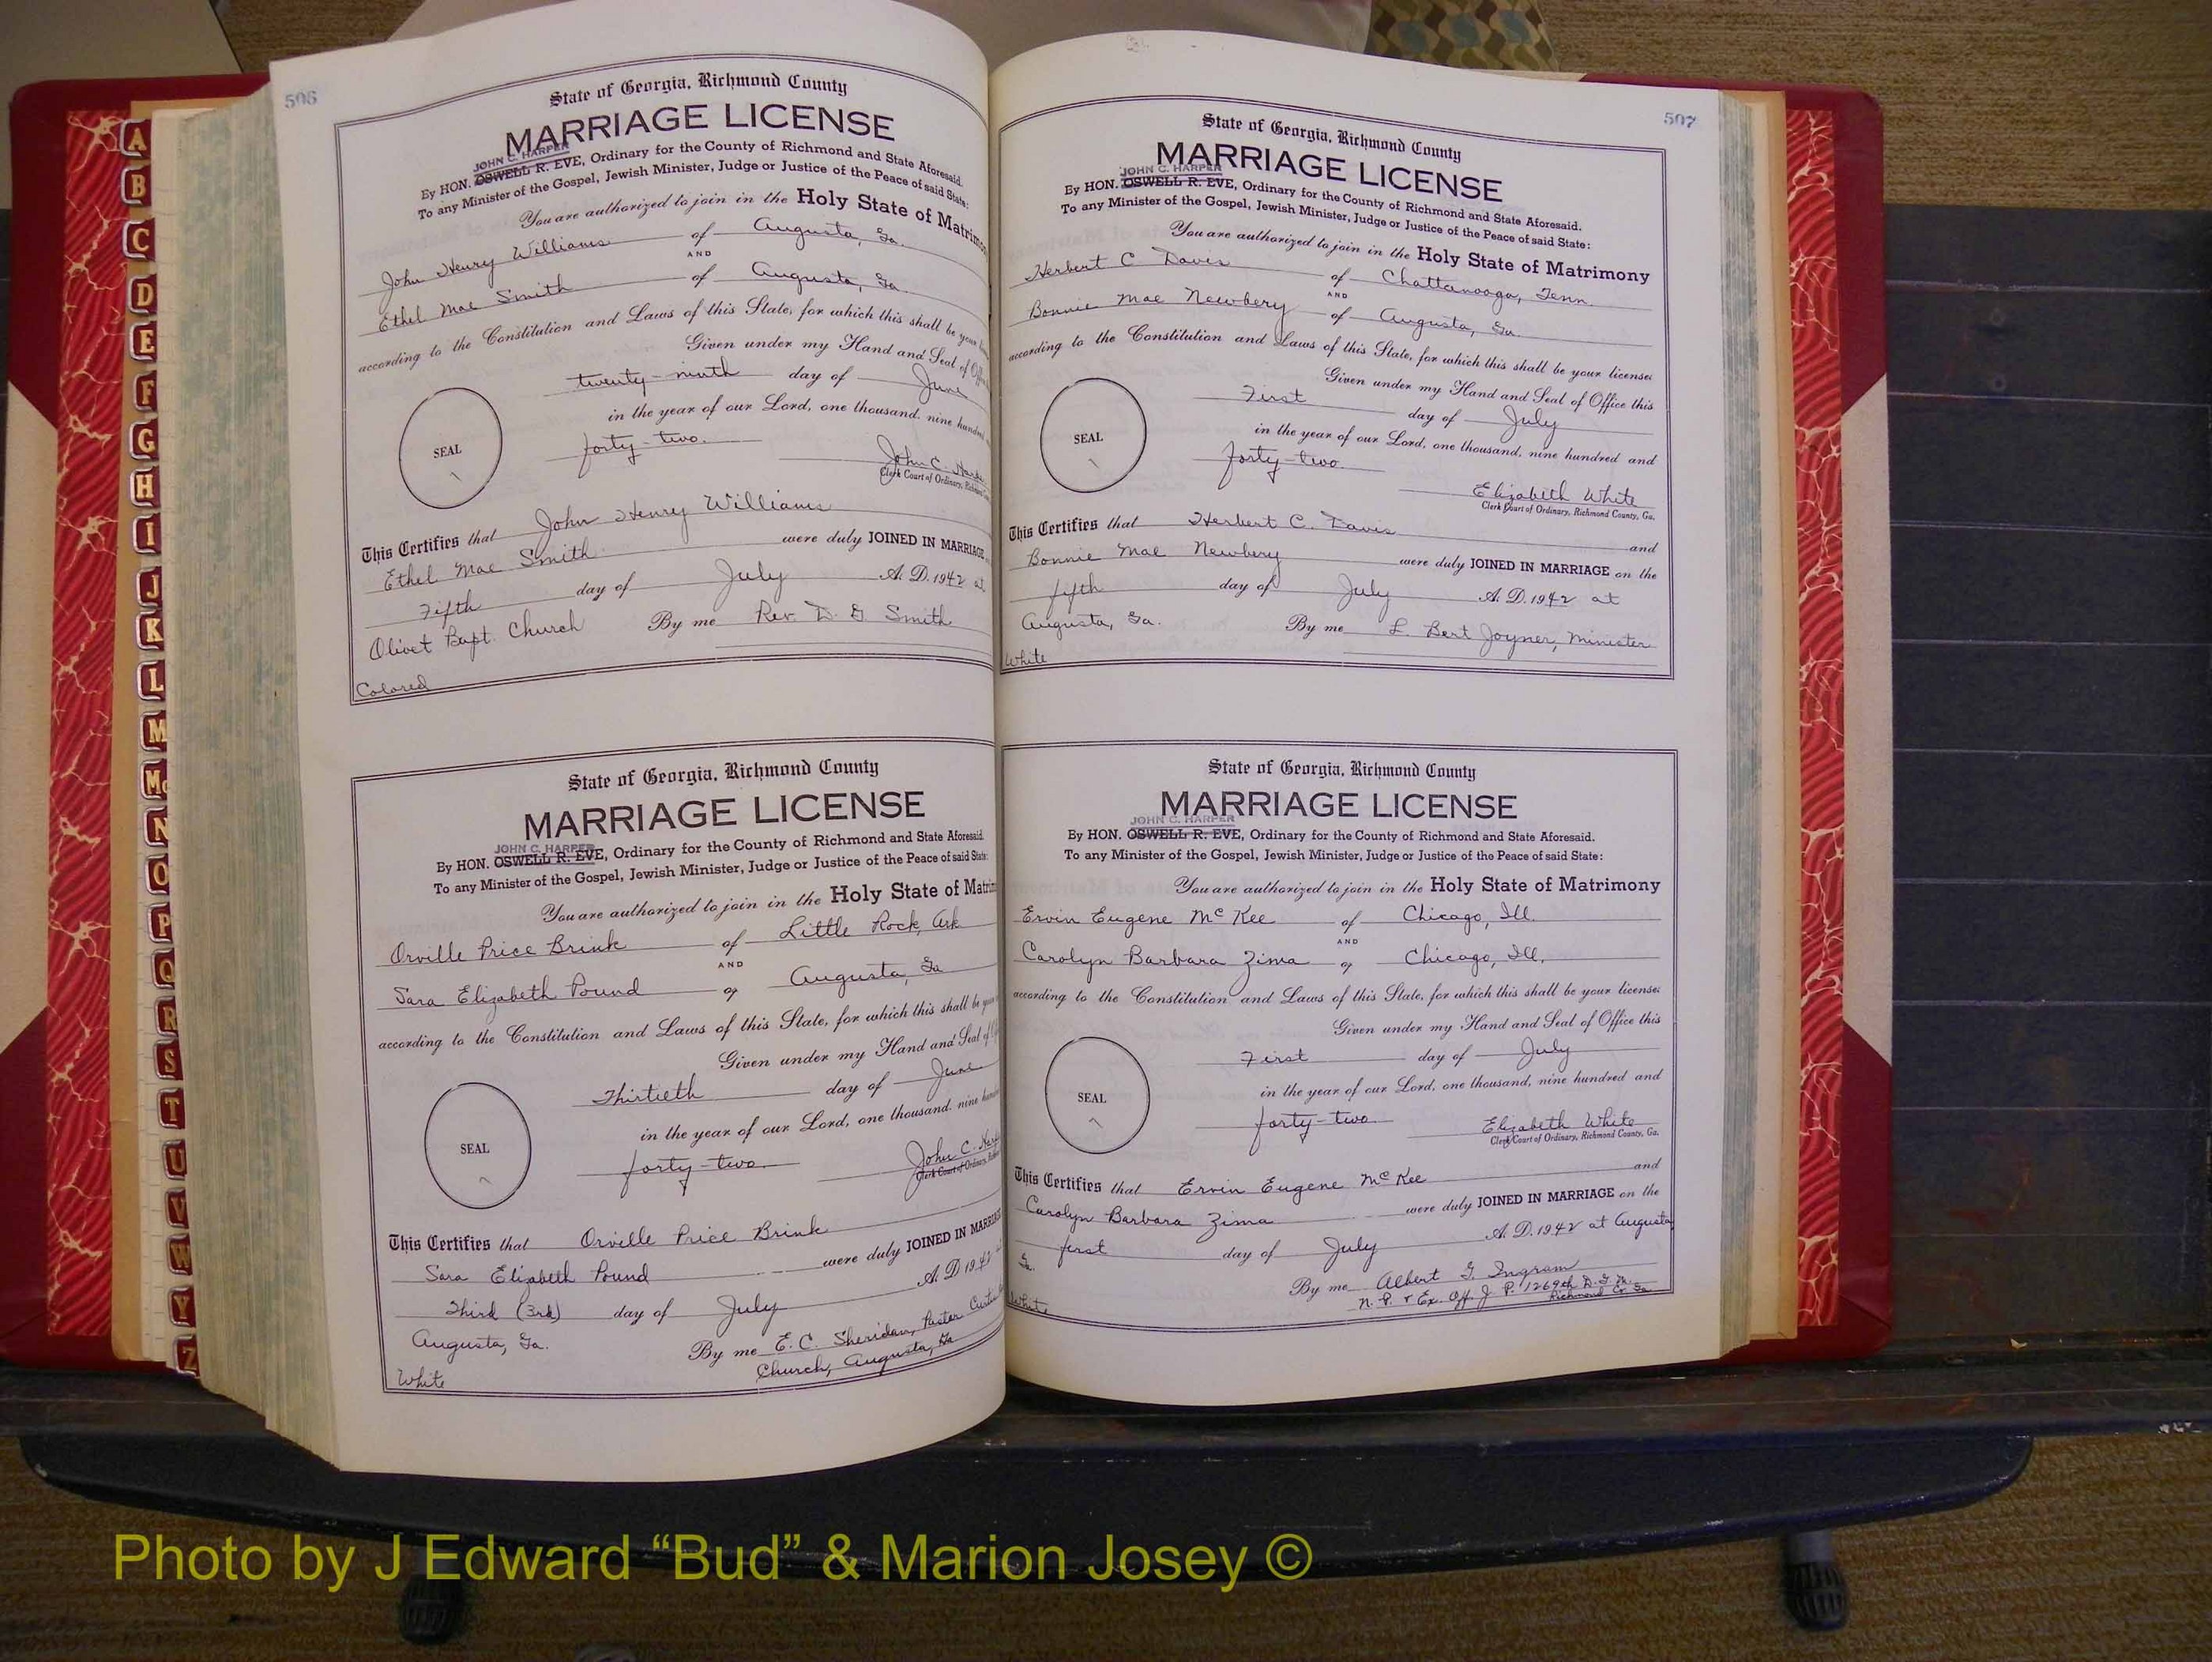 506
State of Georgia, Richmond County
MARRIAGE LICENSE
JOHN C. HARPER
By HON. OSWELL R. EVE, Ordinary for the County of Richmond and State Aforesaid.
To any Minister of the Gospel, Jewish Minister, Judge or Justice of the Peace of said State:
You are authorized to join in the Holy State of Matrimony
John Henry Williams of Augusta, Ga.
AND
Ethel Mae Smith of Augusta, Ga.
according to the Constitution and Laws of this State, for which this shall be your
Given under my Hand and Seal of
twenty-ninth day of June
in the year of our Lord, one thousand, nine hundred
SEAL
forty-two.
John C. Harper
Clerk Court of Ordinary,
This Certifies that John Henry Williams
Ethel Mae Smith were duly JOINED IN MARRIAGE
Fifth day of July A. D. 1942 at
Olivet Bapt. Church By me Rev. D. G Smith
Colored
State of Georgia, Richmond County
MARRIAGE LICENSE
JOHN C. HARPER
By HON. OSWELL R. EVE, Ordinary for the County of Richmond and State Aforesaid.
To any Minister of the Gospel, Jewish Minister, Judge or Justice of the Peace of said State:
You are authorized to join in the Holy State of
Orville Price Brink of Little Rock, Ark
AND
Sara Elizabeth Pound of Augusta, Ga
according to the Constitution and Laws of this State, for which this shall be your
Given under my Hand and Seal of
Thirtieth day of June
in the year of our Lord, one thousand, nine
SEAL
forty-two.
John C.
Clerk Court of Ordinary,
This Certifies that Orville Price Brink
Sara Elizabeth Pound were duly JOINED IN MARRIAGE
Third (3rd) day of July A. D. 1942
Augusta, Ga. By me E. C. Sheridan, Pastor Curtis
Church, Augusta, Ga
White
507
State of Georgia, Richmond County
MARRIAGE LICENSE
JOHN C. HARPER
By HON. OSWELL R. EVE, Ordinary for the County of Richmond and State Aforesaid.
To any Minister of the Gospel, Jewish Minister, Judge or Justice of the Peace of said State:
You are authorized to join in the Holy State of Matrimony
Herbert C Davis of Chattanooga, Tenn.
AND
Bonnie Mae Newbery of Augusta, Ga.
according to the Constitution and Laws of this State, for which this shall be your license:
Given under my Hand and Seal of Office this
First day of July
in the year of our Lord, one thousand, nine hundred and
SEAL
forty-two.
Elizabeth White
Clerk Court of Ordinary, Richmond County, Ga.
This Certifies that Herbert C. Davis and
Bonnie Mae Newbery were duly JOINED IN MARRIAGE on the
fifth day of July A. D. 1942 at
Augusta, Ga. By me L. Bert Joyner, Minister
White
State of Georgia, Richmond County
MARRIAGE LICENSE
JOHN C. HARPER
By HON. OSWELL R. EVE, Ordinary for the County of Richmond and State Aforesaid.
To any Minister of the Gospel, Jewish Minister, Judge or Justice of the Peace of said State:
You are authorized to join in the Holy State of Matrimony
Ervin Eugene McKee of Chicago, Ill.
AND
Carolyn Barbara Zima of Chicago, Ill.
according to the Constitution and Laws of this State, for which this shall be your license:
Given under my Hand and Seal of Office this
First day of July
in the year of our Lord, one thousand, nine hundred and
SEAL
forty-two
Elizabeth White
Clerk Court of Ordinary, Richmond County, Ga.
This Certifies that Ervin Eugene McKee and
Carolyn Barbara Zima were duly JOINED IN MARRIAGE on the
first day of July A. D. 1942 at Augusta
Ga. By me Albert G. Ingram
N. P. & Ex. Off. J. P. 1269th D. G. M.
Richmond Co. Ga
White
A
B
C
D
E
F
G
H
I
J
K
L
M
Mc
N
O
P
Q
R
S
T
U
V
W
Y
Z
Photo by J Edward “Bud” & Marion Josey ©